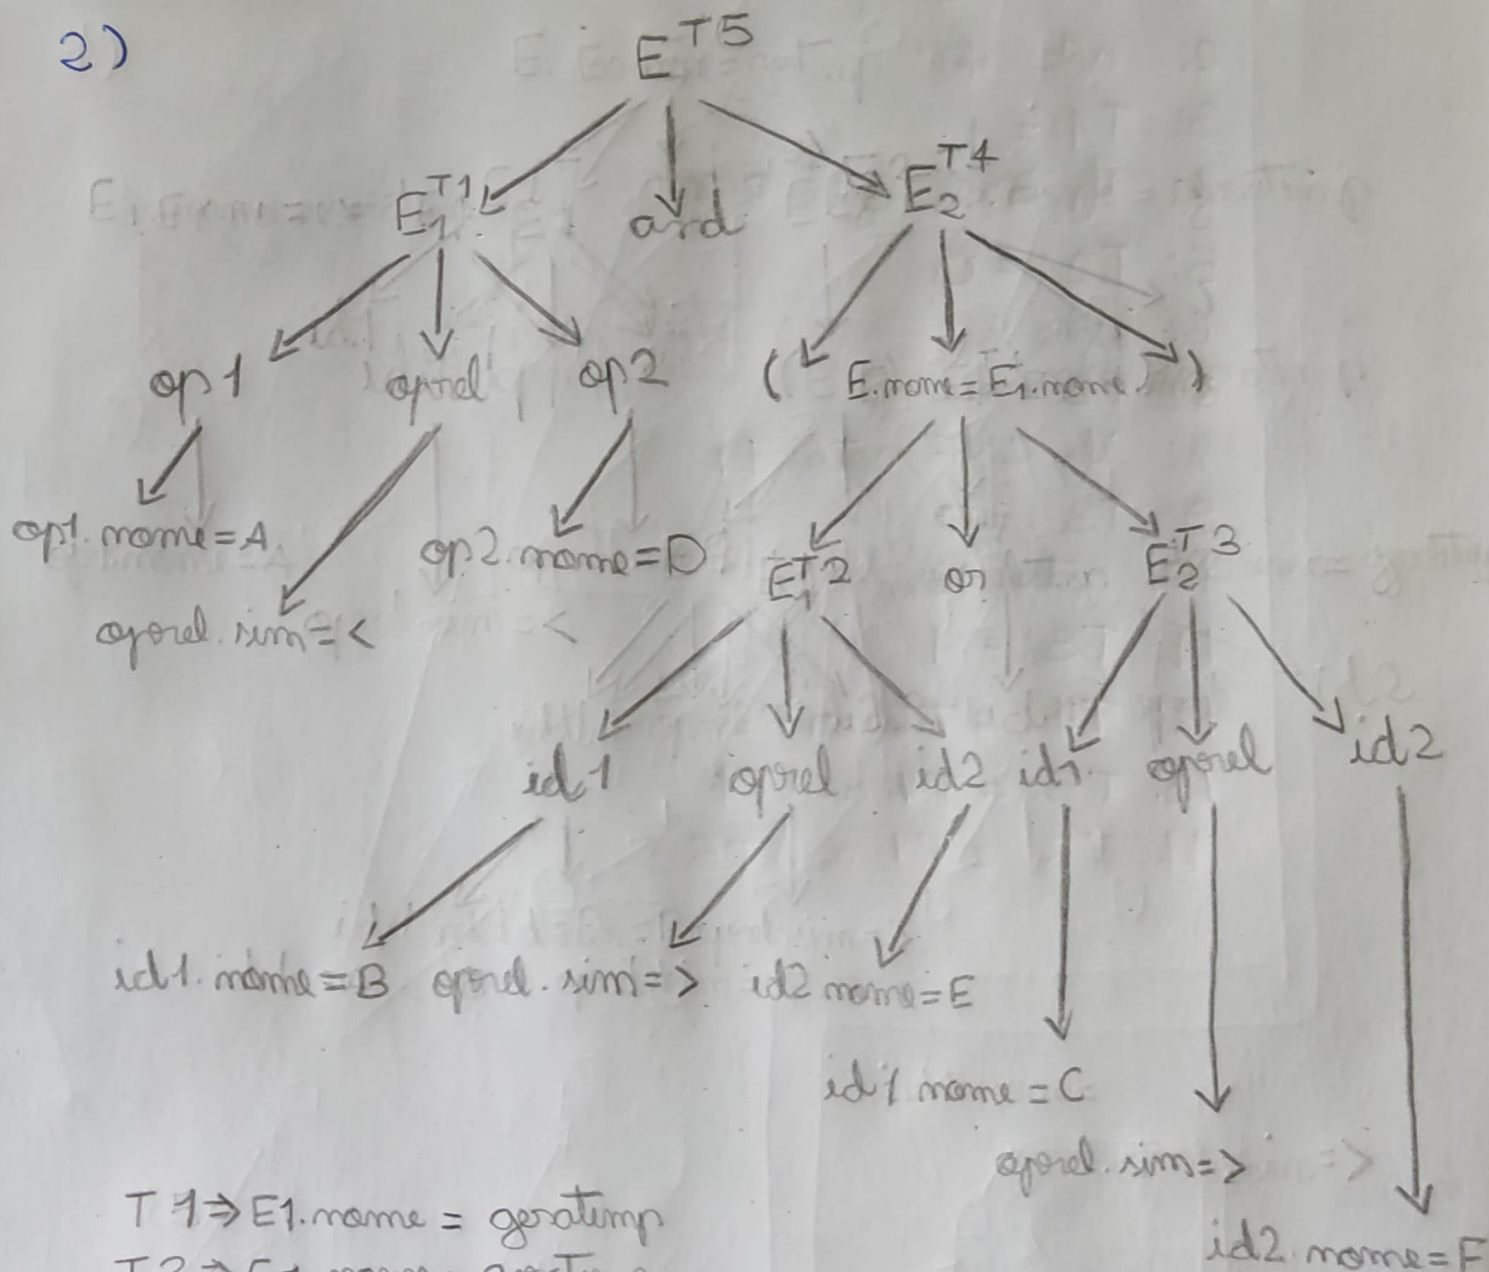 2)
E T5
E1 T1 and E2 T4
op1 oprel op2 ( E.nome=E1.nome )
op1.nome=A op2.nome=D E1 T2 or E2 T3
oprel.sim=<
id1 oprel id2 id1 oprel id2
id1.nome=B oprel.sim=> id2 nome=E
id1 nome=C
oprel.sim=>
T1⇒E1.nome = geratemp
id2.nome=F